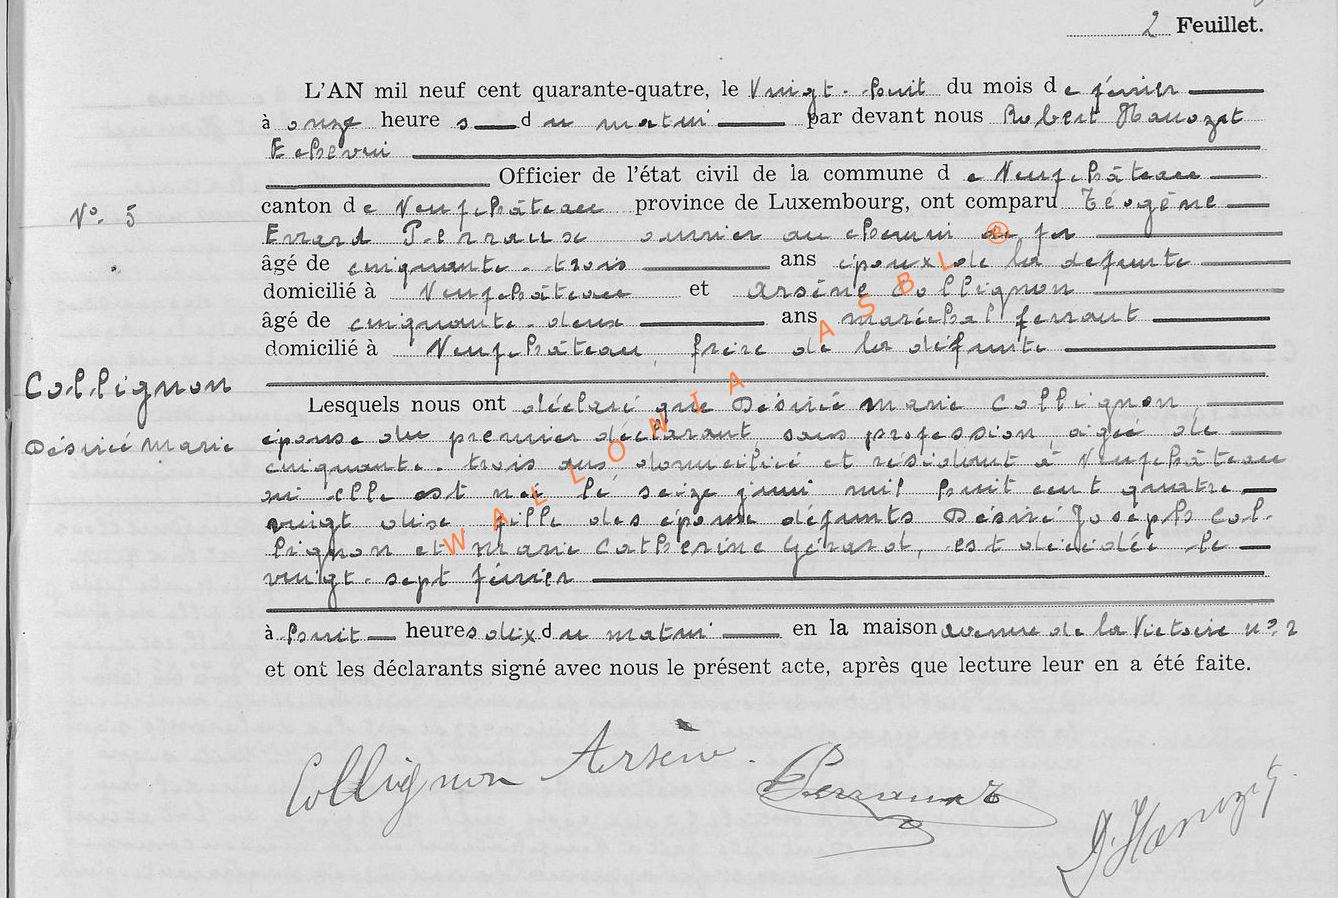 2 Feuillet.
L'AN mil neuf cent quarante-quatre, le Vingt-huit du mois de février
à onze heures du matin par devant nous Robert Hanozet
Echevin
Officier de l'état civil de la commune de Neufchâteau
N° 5
canton de Neufchâteau province de Luxembourg, ont comparu Téogène
Errard ouvrier au chemin de fer
âgé de cinquante-trois ans époux de la defunte
domicilié à Neufchâteau et Arsène Collignon
âgé de cinquante-deux ans maréchal ferrant
domicilié à Neufchâteau, frère de la défunte
Collignon
Désirée Marie
Lesquels nous ont déclaré que Désirée Marie Collignon
épouse du premier déclarant, sans profession, agée de
cinquante-trois ans domiciliée et résidant à Neufchâteau
où elle est née le seize juin mil huit cent quatre
vingt dix, fille des époux défunts Désiré Joseph Col-
lignon et Marie Catherine Gérard, est décédée le
vingt-sept février
à huit heures dix du matin en la maison avenue de la Victoire n° 2
et ont les déclarants signé avec nous le présent acte, après que lecture leur en a été faite.
WALLONIA ASBL ®
Collignon Arsène
Hanozet